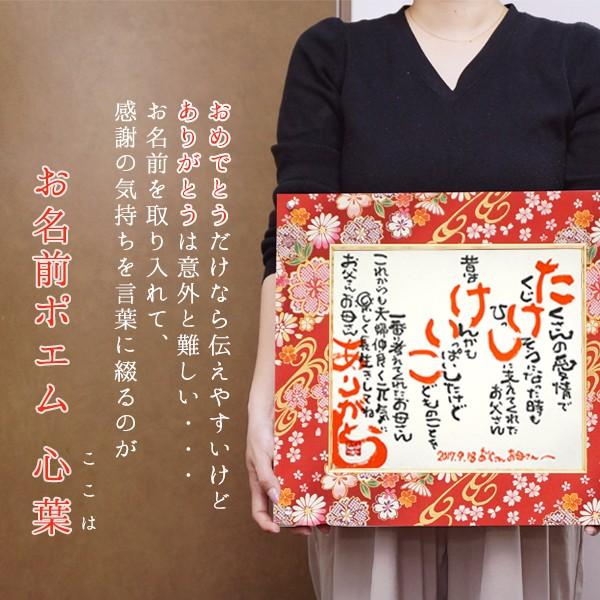 おめでとうだけなら伝えやすいけど
ありがとうは意外と難しい・・・
お名前を取り入れて、
感謝の気持ちを言葉に綴るのが
お名前ポエム 心葉
ここは
たくさんの愛情で
くじけそうになった時も
ひっしに支えてくれた
お父さん
昔は
けんかも
いっぱいしたけど
こどものことを
一番に考えてくれたお母さん
これからも夫婦仲良く元気に
楽しく長生きしてね
お父さんお母さん
ありがとう
2017.9.18 お父さん、お母さんへ